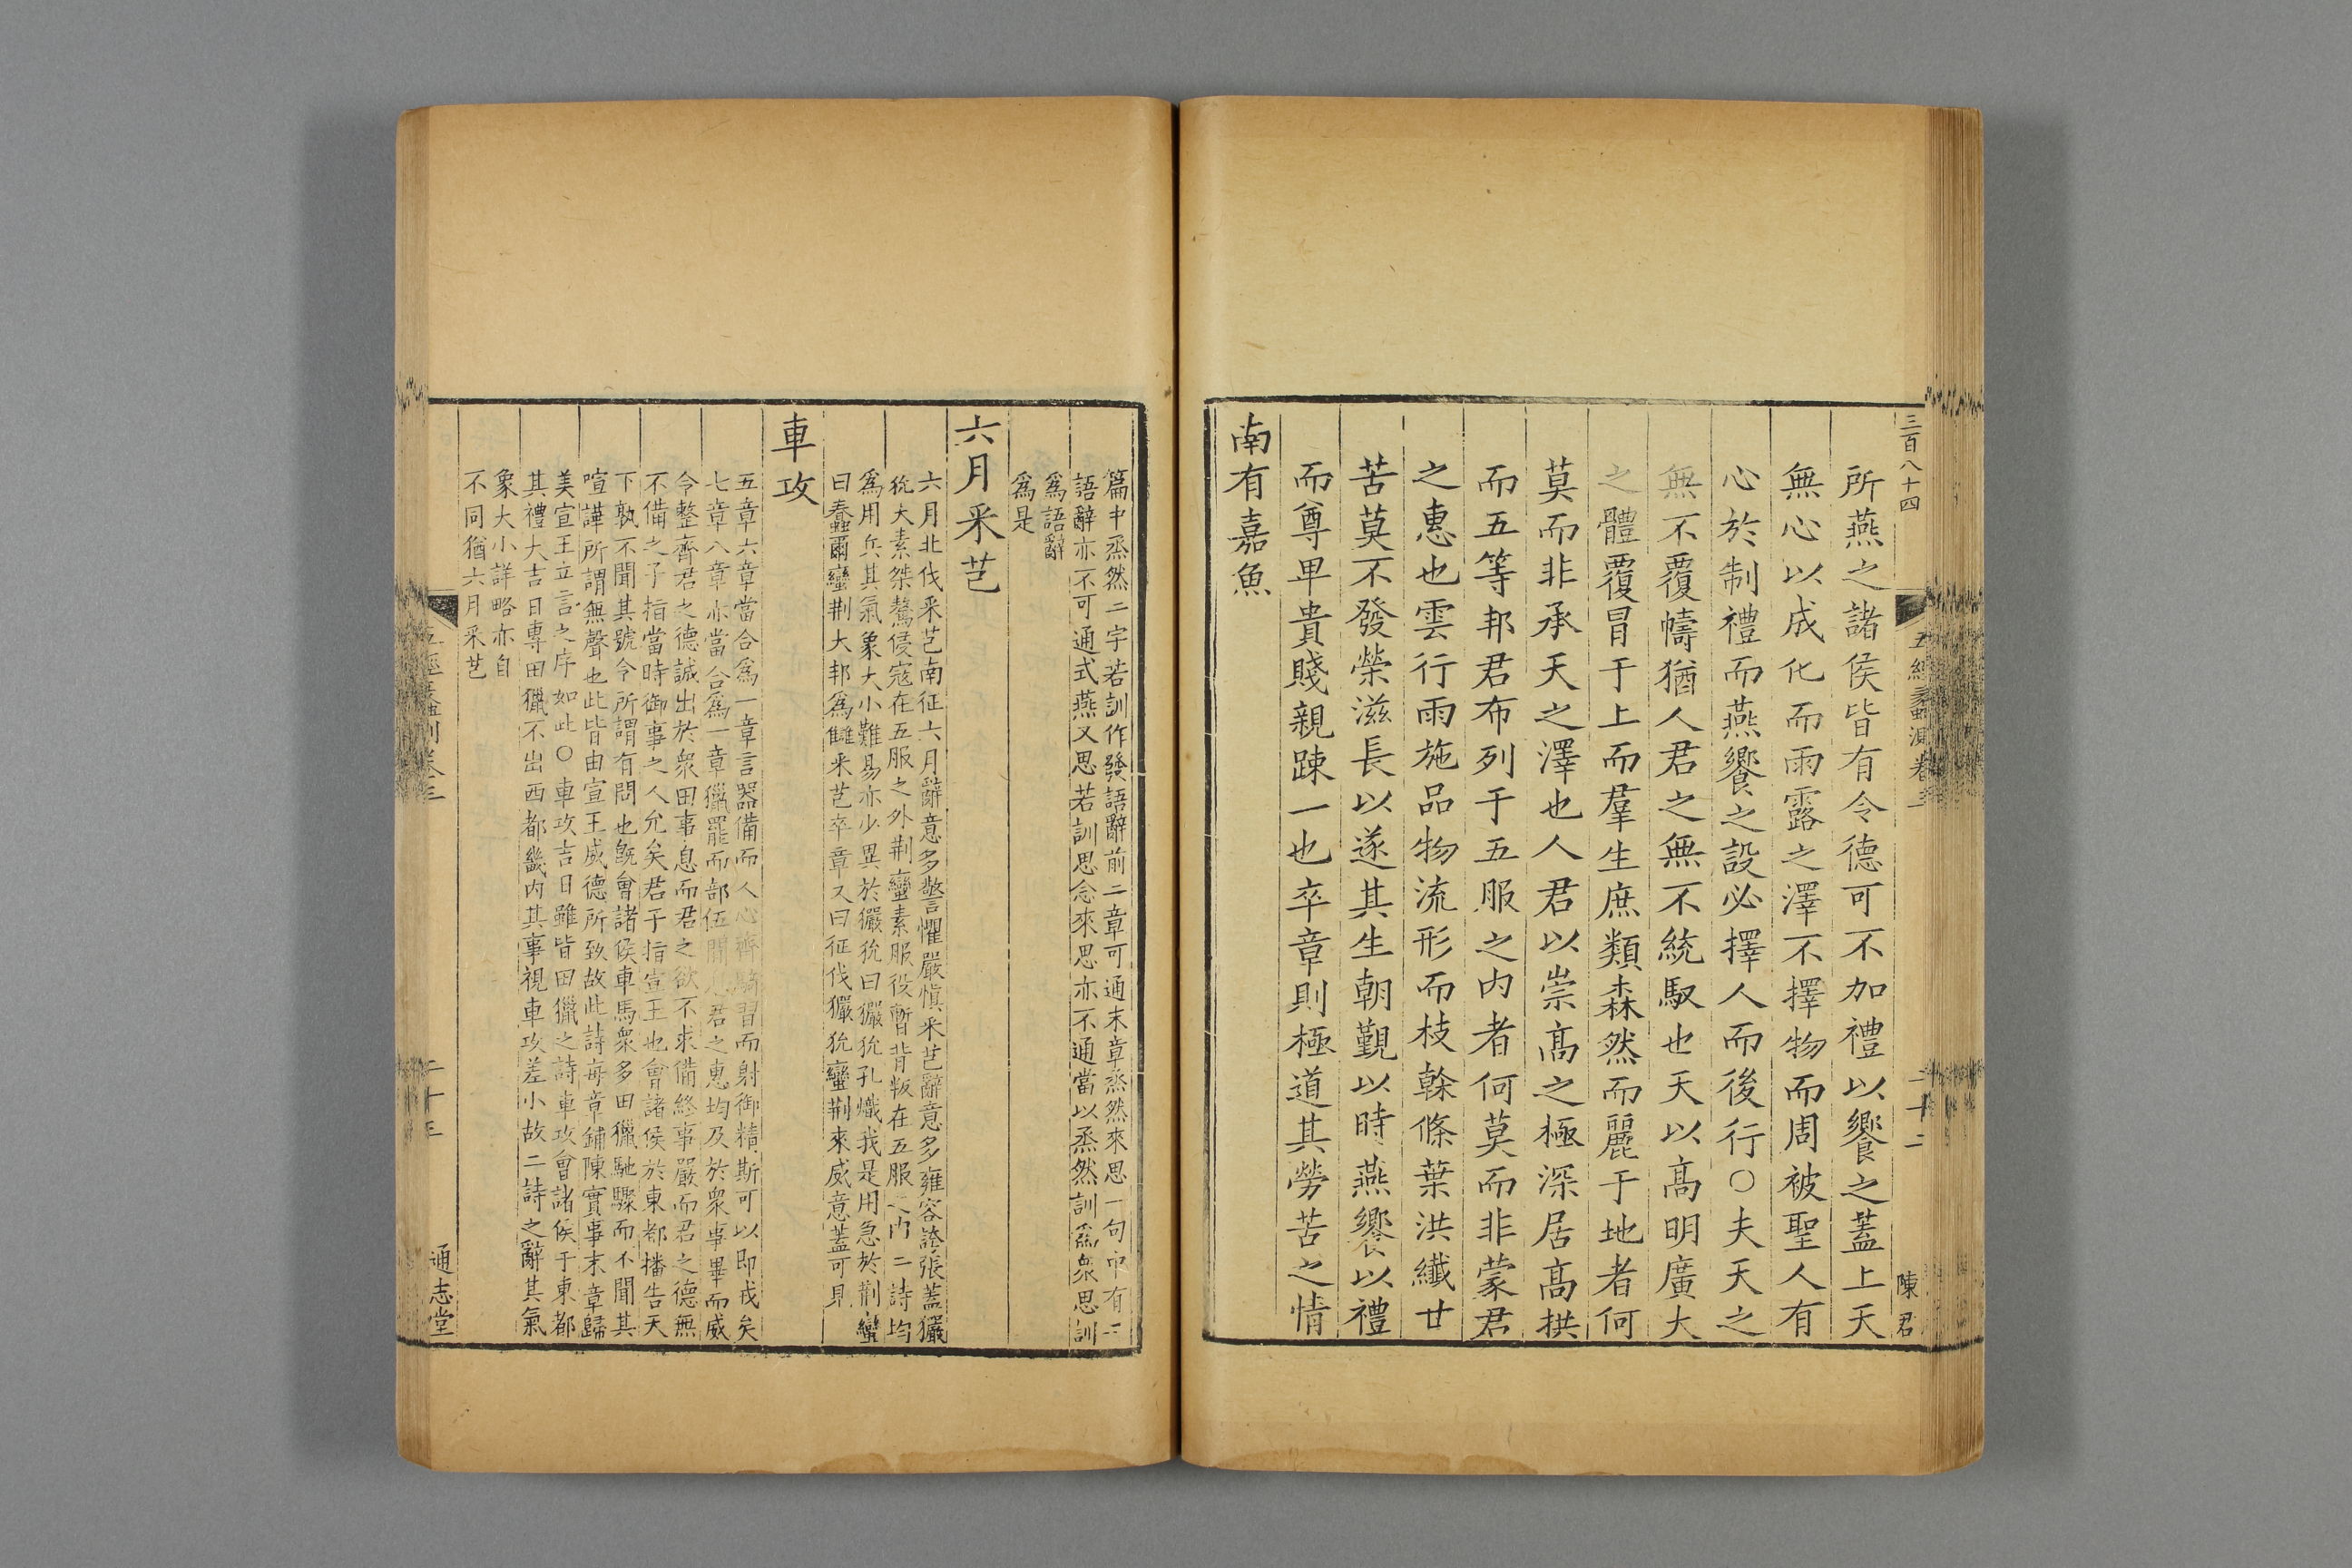 三百八十四
五經蠡測卷三
二十二
陳君
所燕之諸侯皆有令德可不加禮以饗之蓋上天
無心以成化而雨露之澤不擇物而周被聖人有
心於制禮而燕饗之設必擇人而後行〇夫天之
無不覆幬猶人君之無不統馭也天以高明廣大
之體覆冒于上而羣生庶類森然而麗于地者何
莫而非承天之澤也人君以崇高之極深居高拱
而五等邦君布列于五服之内者何莫而非蒙君
之惠也雲行雨施品物流形而枝榦條葉洪纖甘
苦莫不發榮滋長以遂其生朝覲以時燕饗以禮
而尊卑貴賤親踈一也卒章則極道其勞苦之情
南有嘉魚
篇中烝然二字若訓作發語辭前二章可通末章烝然來思一句中有二
語辭亦不可通式燕又思若訓思念來思亦不通當以烝然訓爲衆思訓
爲語辭
爲是
六月采芑
六月北伐采芑南征六月辭意多警懼嚴愼采芑辭意多雍容誇張蓋玁
狁大素桀驁侵寇在五服之外荆蠻素服役暫背叛在五服之内二詩均
爲用兵其氣象大小難易亦少異於玁狁曰玁狁孔熾我是用急於荆蠻
曰蠢爾蠻荆大邦爲讎采芑卒章又曰征伐玁狁蠻荆來威意蓋可見
車攻
五章六章當合爲一章言器備而人心齊騎習而射御精斯可以即戎矣
七章八章亦當合爲一章獵罷而部伍閒人君之惠均及於衆事畢而威
令整齊君之德誠出於衆田事息而君之欲不求備終事嚴而君之德無
不備之子指當時御事之人允矣君子指宣王也會諸侯於東都播告天
下孰不聞其號令所謂有問也旣會諸侯車馬衆多田獵馳驟而不聞其
喧譁所謂無聲也此皆由宣王威德所致故此詩每章鋪陳實事末章歸
美宣王立言之序如此〇車攻吉日雖皆田獵之詩車攻會諸侯于東都
其禮大吉日專田獵不出西都畿内其事視車攻差小故二詩之辭其氣
象大小詳略亦自
不同猶六月采芑
五經蠡測卷三
二十三
通志堂